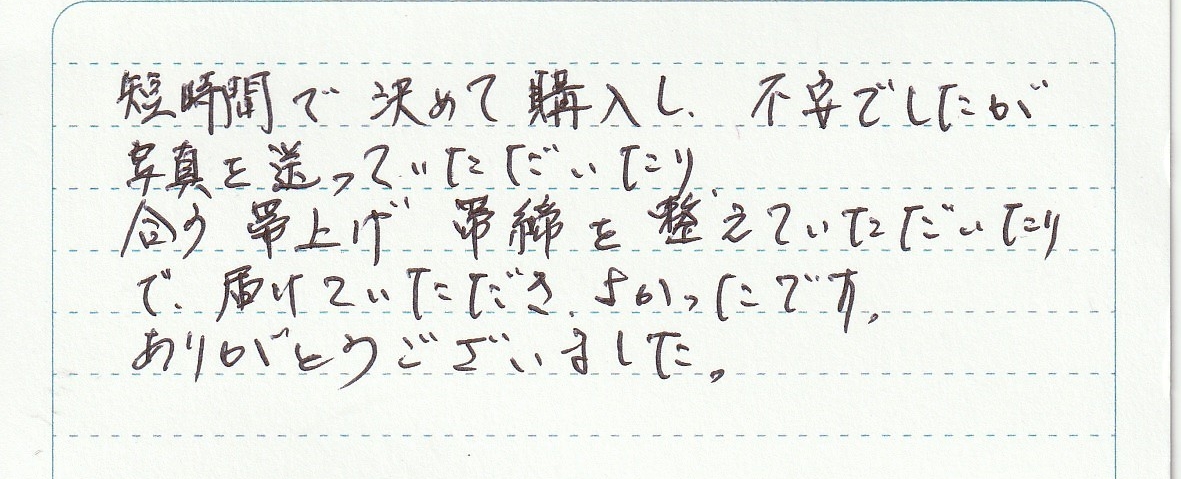 短時間で決めて購入し、不安でしたが
写真を送っていただいたり、
合う帯上げ 帯締を整えていただいたり
で、届けていただき、よかったです。
ありがとうございました。